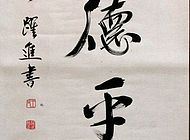 德平
躍進書